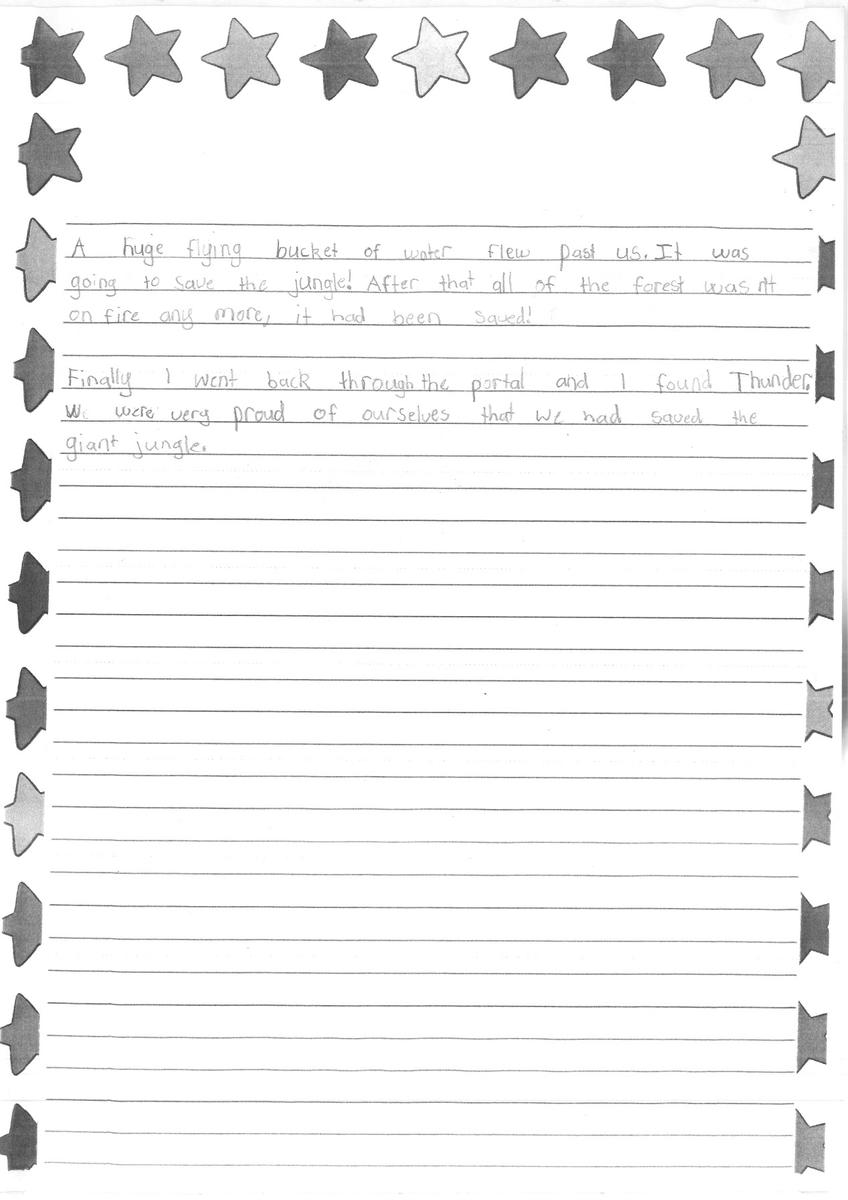 A huge flying bucket of water flew past us. It was
going to save the jungle! After that all of the forest wasn't
on fire any more, it had been saved!
Finally I went back through the portal and I found Thunder.
We were very proud of ourselves that we had saved the
giant jungle.